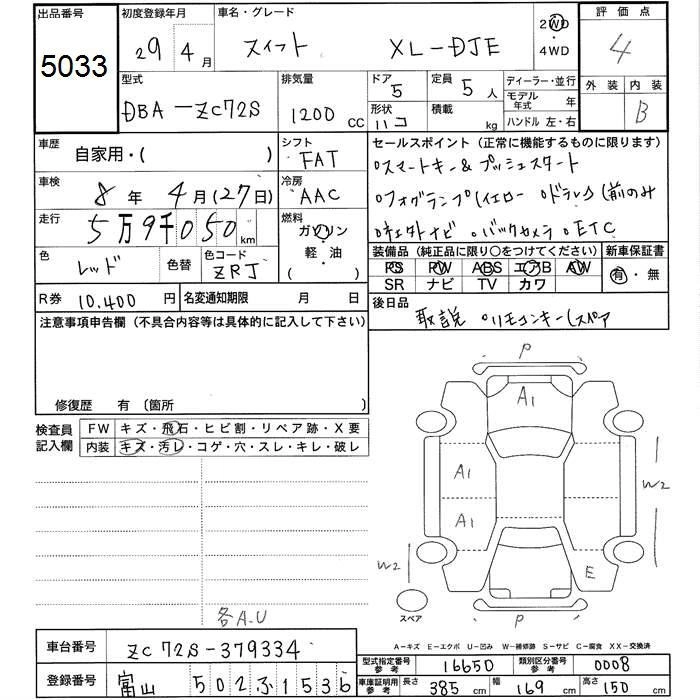 出品番号 初度登録年月 車名・グレード 2WD 評価点
5033 29年4月 スイフト XL-DJE 4WD 4
型式 排気量 ドア 定員 ディーラー・並行 外装 内装
DBA-ZC72S 1200cc 5 5人 モデル年式 年
形状 ハコ 積載 kg ハンドル 左・右 B
車歴 自家用・( ) シフト FAT セールスポイント (正常に機能するものに限ります)
車検 8年4月(27日) 冷房 AAC 스마ートキー&プッシュスタート
走行 5万9千050km 燃料 ガソリン フォグランプ(イエロー ドラレコ(前のみ
軽・油 ナビ バックカメラ ETC
色 レッド 色替 色コード ZRJ ( )
装備品 (純正品に限り○をつけてください) 新車保証書
PS PW ABS エアB AW 有・無
SR ナビ TV カワ
R券 10,400円 名変通知期限 月 日 後日品
取説 リモコンキー(スペア
注意事項申告欄 (不具合内容等は具体的に記入して下さい)
修復歴 有 (箇所 )
検査員記入欄 FW キズ・飛石・ヒビ割・リペア跡・X要
内装 キズ・汚レ・コゲ・穴・スレ・キレ・破レ
P
A1
A1
A1
W2
W2
E
スペア
P
各A.U
A-キズ E-エクボ U-凹み W-補修跡 S-サビ C-腐食 XX-交換済
車台番号 ZC72S-379334
型式指定番号 参考 16650 類別区分番号 参考 0008
登録番号 富山 502 ふ 1536
車庫証明用 参考 長さ 385cm 幅 169cm 高さ 150cm